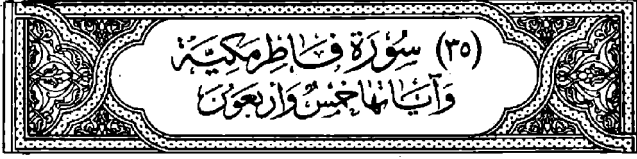 (٣٥) سُورَة فَاطِر مَكِيَّة
وَآيَاتها خَمْسٌ وَأَرْبَعُونَ